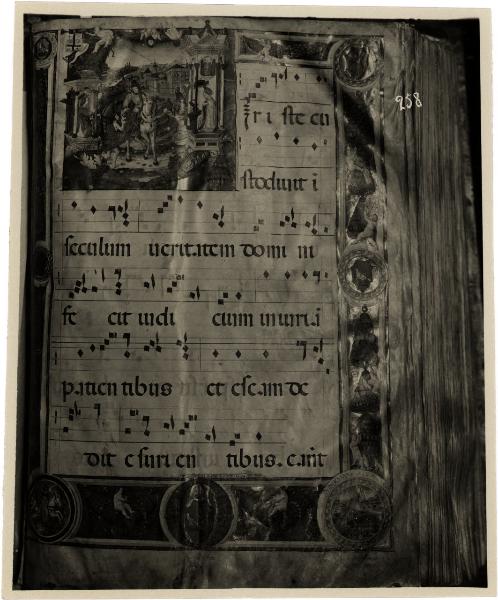 258
r i ste cu
stodiunt i
seculum ueritatem domi ni
fe cit iudi cium iniuria
patien tibus et escam de
dit esurien tibus. cant